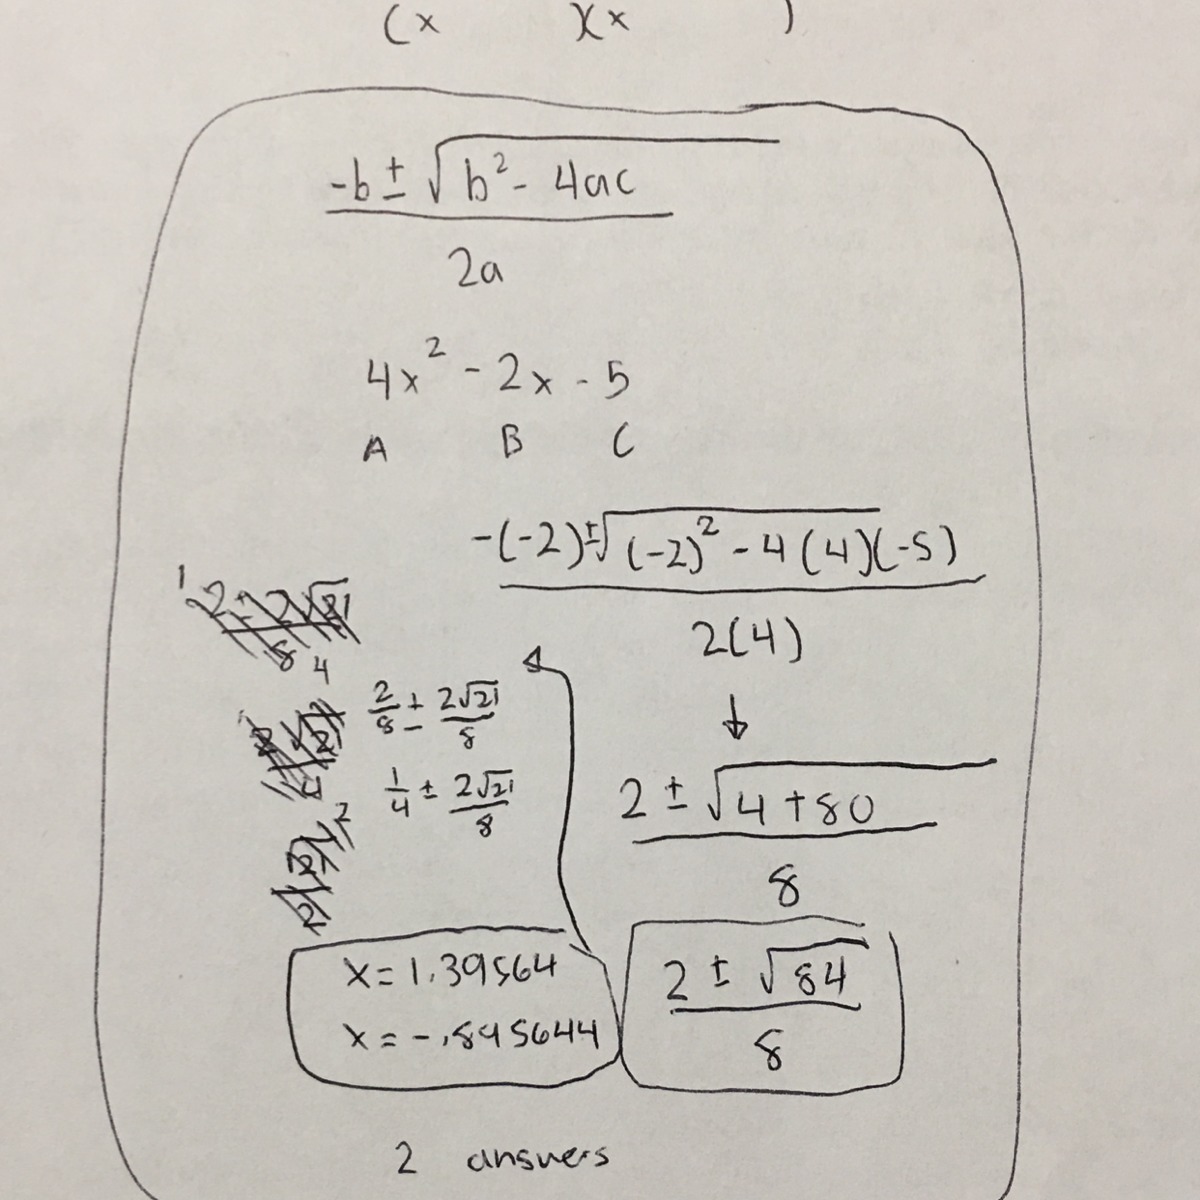 (x )(x )
-b ± √b² - 4ac
2a
4x² - 2x - 5
A B C
-(-2) ± √(-2)² - 4(4)(-5)
2(4)
2/8 ± 2√21/8
1/4 ± 2√21/8
2 ± √4 + 80
8
2 ± √84
8
x = 1.39564
x = -.895644
2 answers